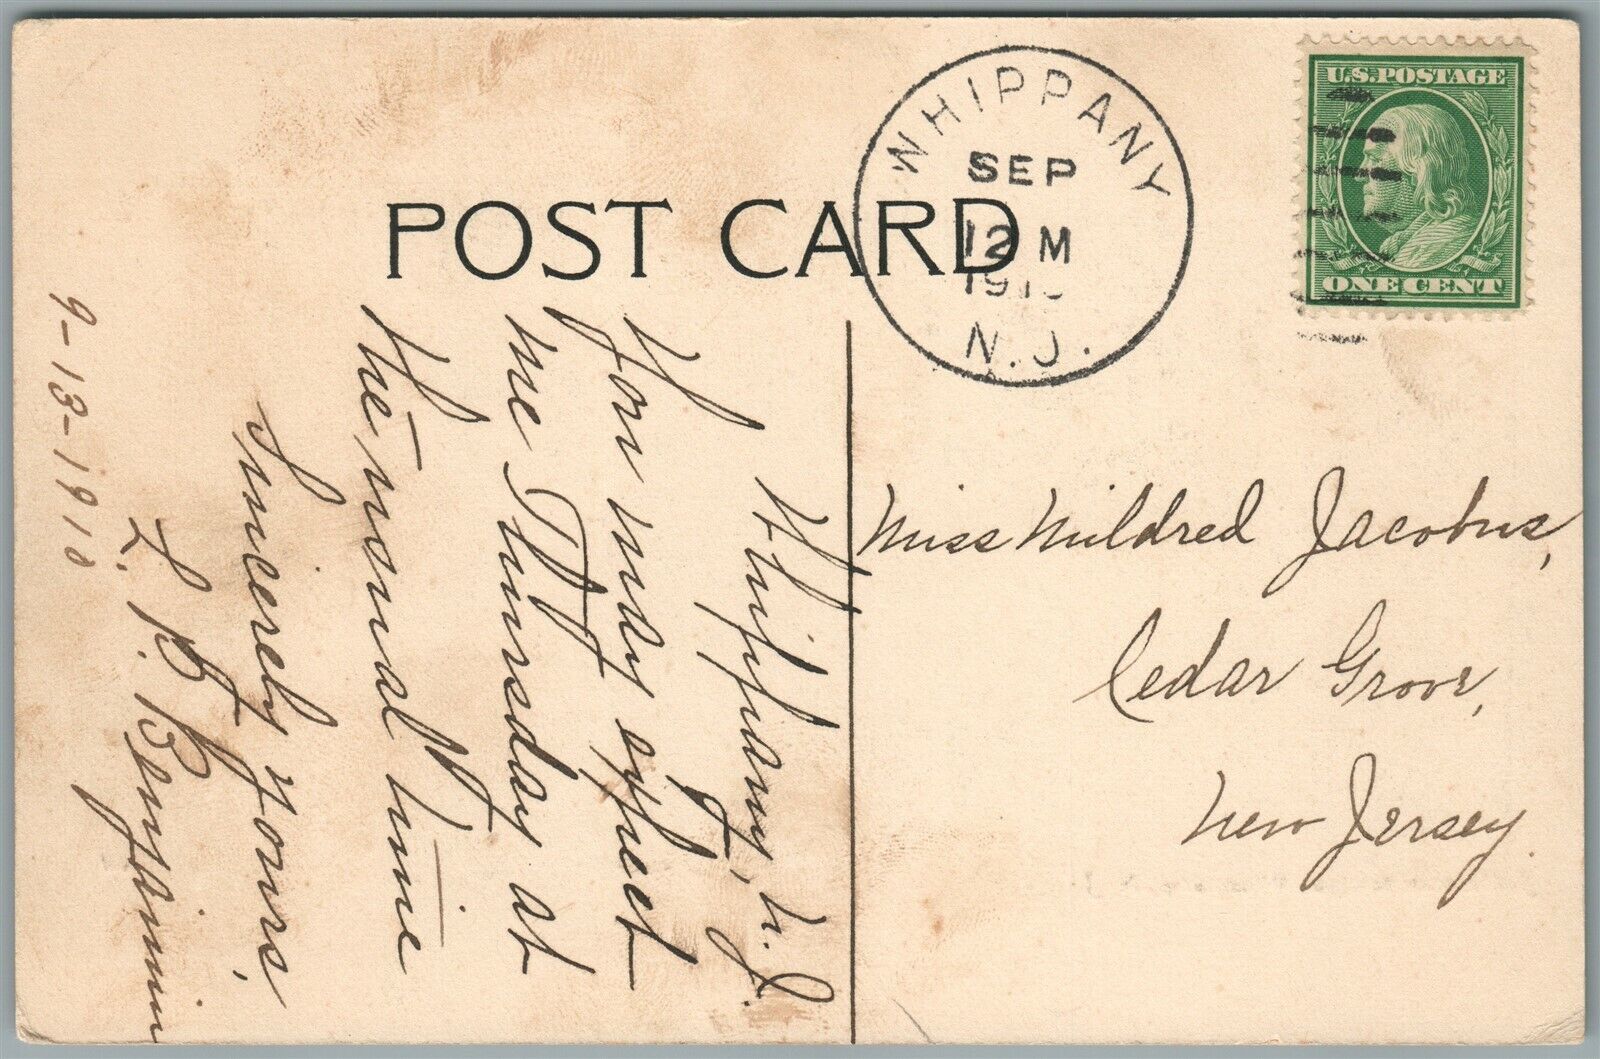 POST CARD
WHIPPANY
SEP
12 M
191
N.J.
U.S. POSTAGE
ONE CENT
Whippany, N.J.
You may expect
me Thursday at
the usual time
Sincerely yours,
L. B. Benjamin
9-13-1910
Miss Mildred Jacobus,
Cedar Grove,
New Jersey.